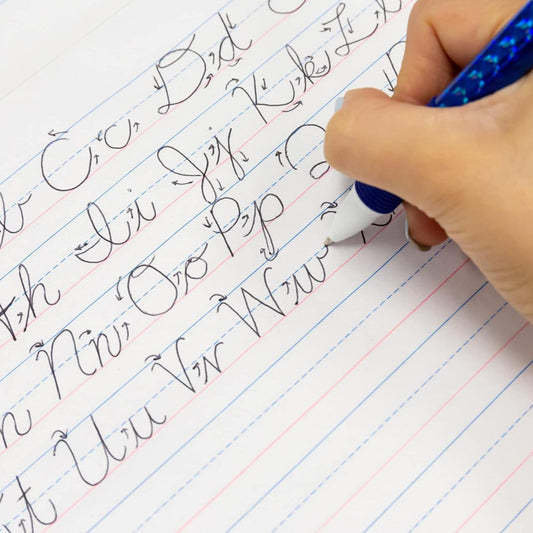 b Cc Dd
h Ii Jj Kk Ll
Nn Oo Pp Q
t Uu Vv Ww